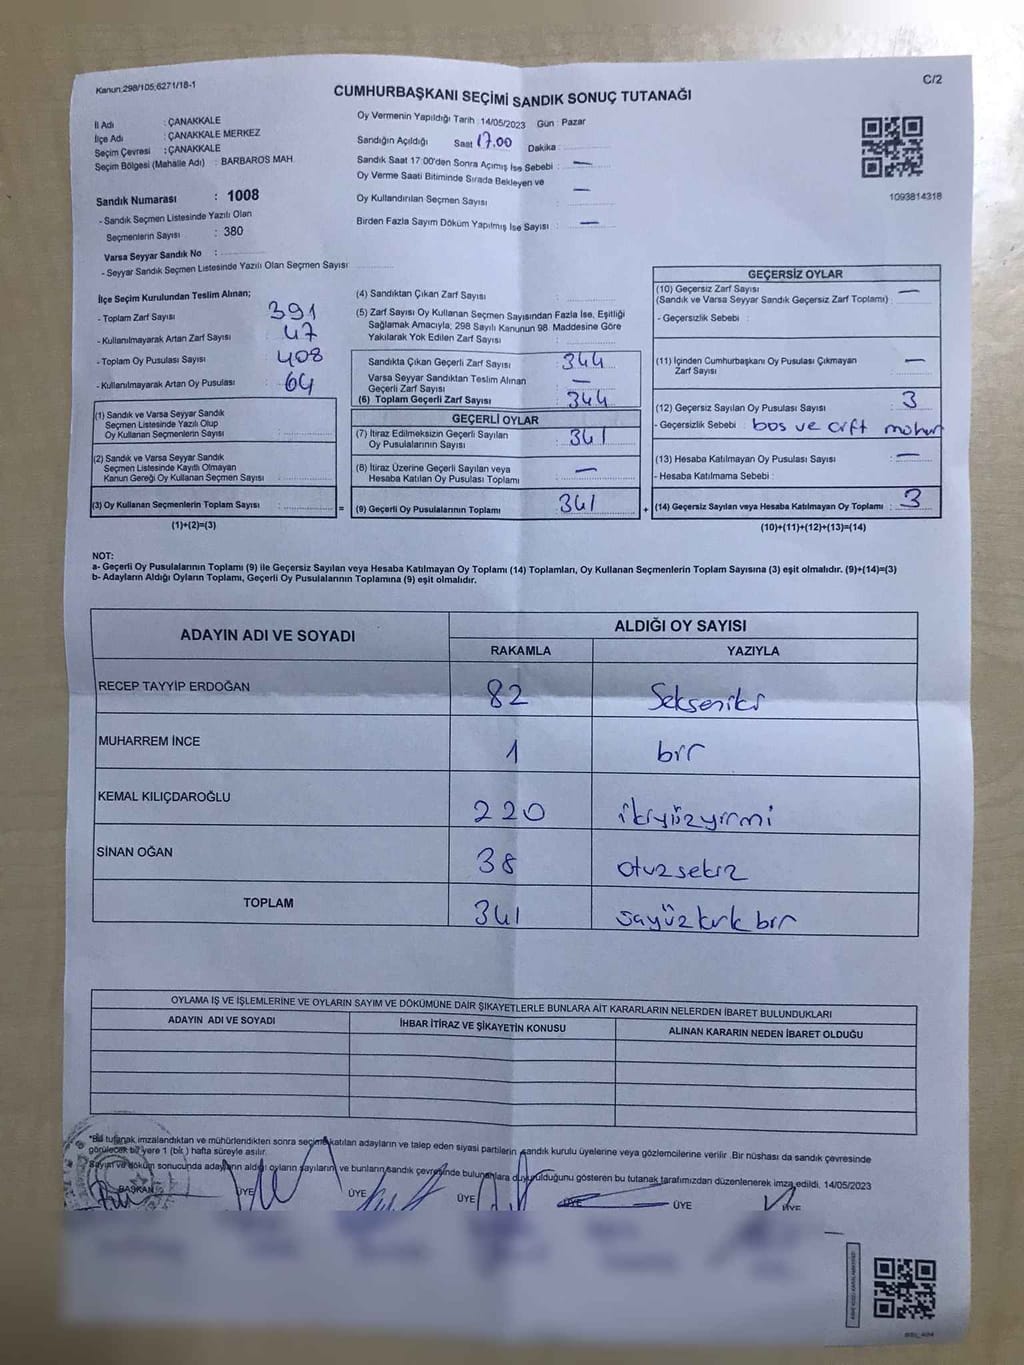 Kanun:298/105,6271/18-1
C/2
CUMHURBAŞKANI SEÇİMİ SANDIK SONUÇ TUTANAĞI
İl Adı : ÇANAKKALE
İlçe Adı : ÇANAKKALE MERKEZ
Seçim Çevresi : ÇANAKKALE
Seçim Bölgesi (Mahalle Adı) : BARBAROS MAH.
Sandık Numarası : 1008
- Sandık Seçmen Listesinde Yazılı Olan
Seçmenlerin Sayısı : 380
Varsa Seyyar Sandık No :
- Seyyar Sandık Seçmen Listesinde Yazılı Olan Seçmen Sayısı :
Oy Vermenin Yapıldığı Tarih : 14/05/2023 Gün : Pazar
Sandığın Açıldığı Saat 17.00 Dakika :
Sandık Saat 17:00'den Sonra Açımış İse Sebebi : —
Oy Verme Saati Bitiminde Sırada Bekleyen ve
Oy Kullandırılan Seçmen Sayısı : —
Birden Fazla Sayım Döküm Yapılmış İse Sayısı : —
1093814318
İlçe Seçim Kurulundan Teslim Alınan;
- Toplam Zarf Sayısı : 391
- Kullanılmayarak Artan Zarf Sayısı : 47
- Toplam Oy Pusulası Sayısı : 408
- Kullanılmayarak Artan Oy Pusulası : 64
(1) Sandık ve Varsa Seyyar Sandık
Seçmen Listesinde Yazılı Olup
Oy Kullanan Seçmenlerin Sayısı :
(2) Sandık ve Varsa Seyyar Sandık
Seçmen Listesinde Kayıtlı Olmayan
Kanun Gereği Oy Kullanan Seçmen Sayısı :
(3) Oy Kullanan Seçmenlerin Toplam Sayısı : =
(1)+(2)=(3)
(4) Sandıktan Çıkan Zarf Sayısı :
(5) Zarf Sayısı Oy Kullanan Seçmen Sayısından Fazla İse, Eşitliği
Sağlamak Amacıyla; 298 Sayılı Kanunun 98. Maddesine Göre
Yakılarak Yok Edilen Zarf Sayısı :
Sandıkta Çıkan Geçerli Zarf Sayısı : 344
Varsa Seyyar Sandıktan Teslim Alınan
Geçerli Zarf Sayısı : —
(6) Toplam Geçerli Zarf Sayısı : 344
GEÇERLİ OYLAR
(7) İtiraz Edilmeksizin Geçerli Sayılan
Oy Pusulasının Sayısı : 341
(8) İtiraz Üzerine Geçerli Sayılan veya
Hesaba Katılan Oy Pusulası Toplamı : —
(9) Geçerli Oy Pusulalarının Toplamı : 341 +
GEÇERSİZ OYLAR
(10) Geçersiz Zarf Sayısı —
(Sandık ve Varsa Seyyar Sandık Geçersiz Zarf Toplamı) :
- Geçersizlik Sebebi :
(11) İçinden Cumhurbaşkanı Oy Pusulası Çıkmayan
Zarf Sayısı : —
(12) Geçersiz Sayılan Oy Pusulası Sayısı : 3
- Geçersizlik Sebebi : bos ve cift mohur
(13) Hesaba Katılmayan Oy Pusulası Sayısı : —
- Hesaba Katılmama Sebebi :
(14) Geçersiz Sayılan veya Hesaba Katılmayan Oy Toplamı : 3
(10)+(11)+(12)+(13)=(14)
NOT:
a- Geçerli Oy Pusulalarının Toplamı (9) ile Geçersiz Sayılan veya Hesaba Katılmayan Oy Toplamı (14) Toplamları, Oy Kullanan Seçmenlerin Toplam Sayısına (3) eşit olmalıdır. (9)+(14)=(3)
b- Adayların Aldığı Oyların Toplamı, Geçerli Oy Pusulalarının Toplamına (9) eşit olmalıdır.
ADAYIN ADI VE SOYADI
ALDIĞI OY SAYISI
RAKAMLA YAZIYLA
RECEP TAYYİP ERDOĞAN 82 Sekseniki
MUHARREM İNCE 1 bir
KEMAL KILIÇDAROĞLU 220 ikiyüzyirmi
SİNAN OĞAN 38 otuzsekiz
TOPLAM 341 sayüzkırk bir
OYLAMA İŞ VE İŞLEMLERİNE VE OYLARIN SAYIM VE DÖKÜMÜNE DAİR ŞİKAYETLERLE BUNLARA AİT KARARLARIN NELERDEN İBARET BULUNDUKLARI
ADAYIN ADI VE SOYADI İHBAR İTİRAZ VE ŞİKAYETİN KONUSU ALINAN KARARIN NEDEN İBARET OLDUĞU
*Bu tutanak imzalandıktan ve mühürlendikten sonra seçime katılan adayların ve talep eden siyasi partilerin sandık kurulu üyelerine veya gözlemcilerine verilir .Bir nüshası da sandık çevresinde
görülecek bir yere 1 (bir) hafta süreyle asılır.
Sayım ve döküm sonucunda adayların aldığı oyların sayılarını ve bunların sandık çevresinde bulunanlara duyurulduğunu gösteren bu tutanak tarafımızdan düzenlenerek imza edildi. 14/05/2023
BAŞKAN ÜYE ÜYE ÜYE ÜYE ÜYE ÜYE